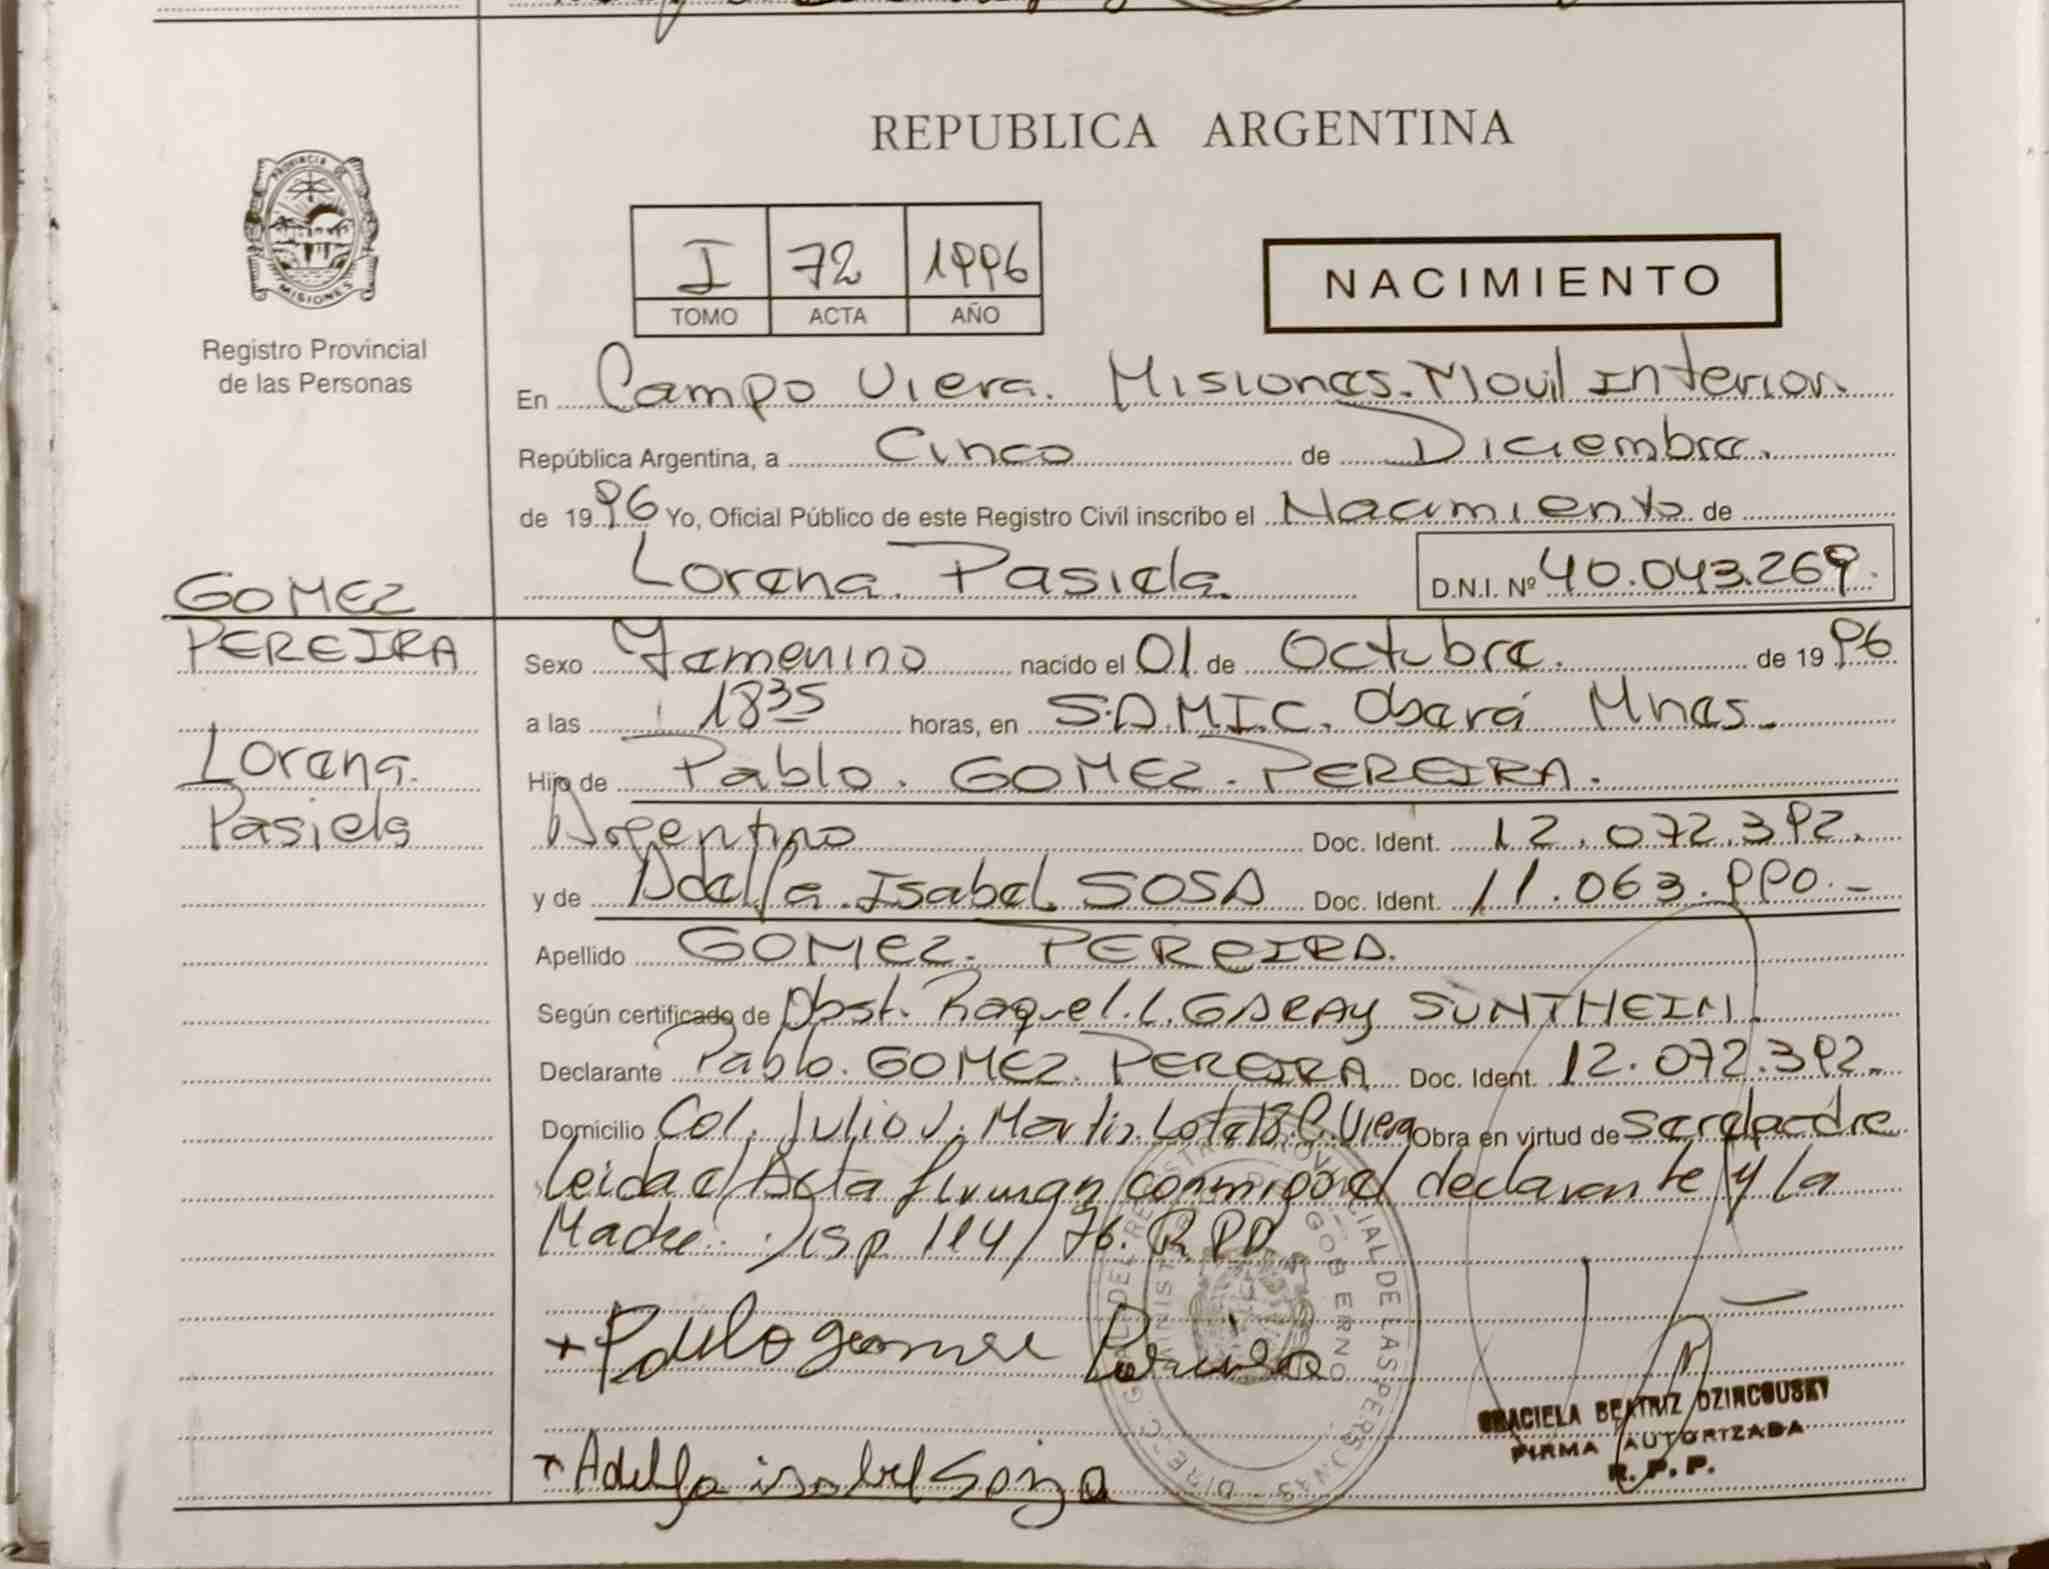 REPUBLICA ARGENTINA
PROVINCIA DE
MISIONES
Registro Provincial
de las Personas
I 72 1996
TOMO ACTA AÑO
NACIMIENTO
En Campo Viera. Misiones. Movil Interior.
República Argentina, a Cinco de Diciembre.
de 1996 Yo, Oficial Público de este Registro Civil inscribo el Nacimiento de
Lorena Pasiela. D.N.I. Nº 40.043.269.
GOMEZ
PEREIRA
Lorena
Pasiela
Sexo Femenino nacido el 01 de Octubre. de 1996
a las 1835 horas, en S.A.M.I.C. Oberá Mnes.
Hijo de Pablo. GOMEZ. PEREIRA.
Argentino Doc. Ident. 12.072.392.
y de Adelfa. Isabel. SOSA Doc. Ident. 11.063.990.-
Apellido GOMEZ. PEREIRA.
Según certificado de Obst. Raquel. L. GARAY SUNTHEIM.
Declarante Pablo. GOMEZ. PEREIRA Doc. Ident. 12.072.392.
Domicilio Col. Julio J. Martin. Lote 18. C. Viera Obra en virtud de ser el padre
leida el Acta firman conmigo el declarante y la
Madre. Disp 114/76. R.P.P.
DIREC. GRAL. DEL REGISTRO PROVINCIAL DE LAS PERSONAS
MINISTERIO GOBIERNO
+ Pablo gomez Pereira
+ Adelfa isabel Soiza
GRACIELA BEATRIZ DZIRCOUSKY
FIRMA AUTORIZADA
R.P.P.